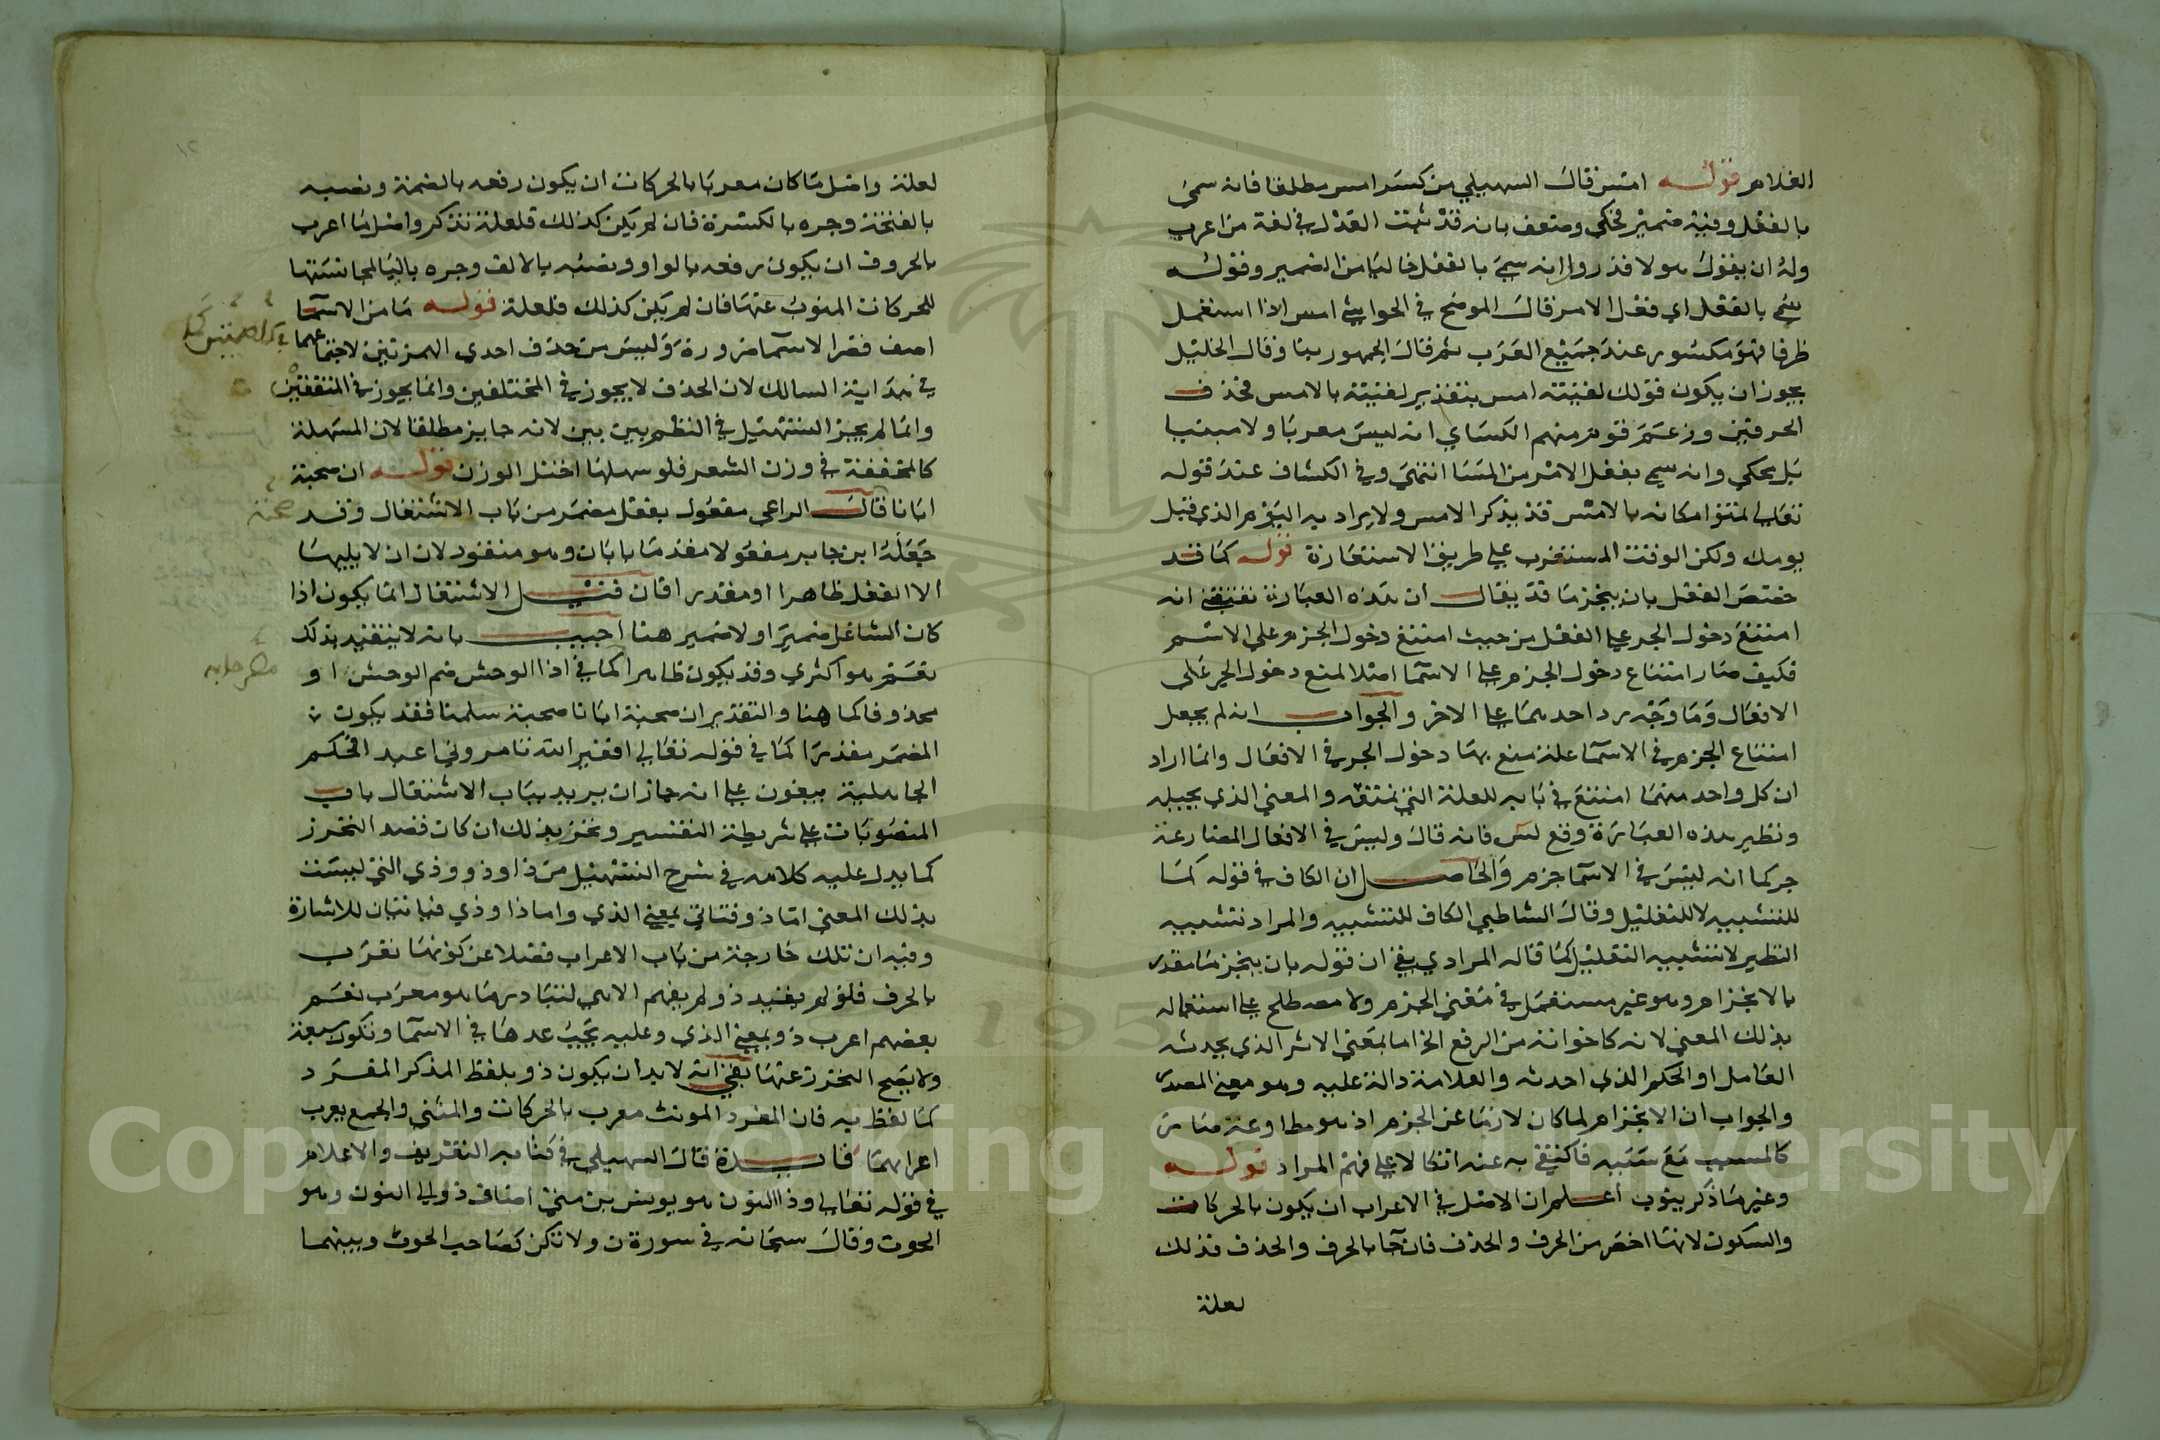 الغلام قوله امس قال السهيلي من كسر امس مطلقا فانه سمي
بالفعل وفيه ضمير فحكي وضعف بانه قد ثبتت العدل في لغة من اعرب
وله ان يقول هولا قدروا انه سمي بالفعل خاليا من الضمير وقوله
سمي بالفعل اي فعل الامر قال الموضح في الحواشي امس اذا استعمل
ظرفا فهو مكسور عند جميع العرب ثم قال الجمهور بنا وقال الخليل
يجوز ان يكون قولك لقيته امس بتقدير لقيته بالامس فحذف
الحرفين وزعم قوم منهم الكساي انه ليس معربا ولا مبنيا
بل محكي وانه سمي بفعل الامر من المسا انتهي وفي الكشاف عند قوله
تعالي تمنوا مكانه بالامس قد يذكر الامس ولا يراد به اليوم الذي قبل
يومك ولكن الوقت المستقرب علي طريق الاستعارة قوله كما قد
خصص الفعل بان ينجزما قد يقال ان هذه العبارة تقتضي انه
امتنع دخول الجر علي الفعل من حيث امتنع دخول الجزم علي الاسم
فكيف صار امتناع دخول الجزم علي الاسما اصلا لمنع دخول الجر علي
الافعال وما وجه رد احدهما علي الاخر والجواب انه لم يجعل
امتناع الجزم في الاسما علة منع بها دخول الجر في الافعال وانما اراد
ان كل واحد منهما امتنع في بابه للعلة التي تمنعه والمعني الذي يحيله
ونظير هذه العبارة وقع لس فانه قال وليس في الافعال المضارعة
جر كما انه ليس في الاسما جزم والحاصل ان الكاف في قوله كما
للتشبيه لا للتعليل وقال الشاطبي الكاف للتشبيه والمراد تشبيه
النظير لا تشبيه التعليل كما قاله المرادي بقي ان قوله بان ينجزما مقدر
بالانجزام وهو غير مستعمل في معني الجزم ولا مصطلح علي استعماله
بذلك المعني لانه كاخوانه من الرفع الخ اما بمعني الاثر الذي يحدثه
العامل او الحكم الذي احدثه والعلامة دالة عليه وهو معني المصدر
والجواب ان الانجزام لما كان لازما عن الجزم اذ هو مطاوعه صار
كالمسبب مع سببه فاكتفي به عنه اتكالا علي فهم المراد قوله
وغير ما ذكر ينوب اعلم ان الاصل في الاعراب ان يكون بالحركات
والسكون لانها اخصر من الحرف والحذف فان جا بالحرف والحذف فذلك
لعلة
لعلة واصل ما كان معربا بالحركات ان يكون رفعه بالضمة ونصبه
بالفتحة وجره بالكسرة فان لم يكن كذلك فلعلة تذكر واصل ما اعرب
بالحروف ان يكون رفعه بالواو ونصبه بالالف وجره باليا لمجانستها
للحركات المنوب عنها فان لم يكن كذلك فلعلة قوله ما من الاسما
اصف قصر الاسما ضرورة وليس من حذف احدي الهمزتين لاجتماعهما
في بداية السالك لان الحذف لا يجوز في المختلفين وانما يجوز في المتفقتين
وانما لم يجز التسهيل في النظم بين بين لانه جايز مطلقا لان المسهلة
كالمخففة في وزن الشعر فلو سهلها اختل الوزن قوله ان صحبة
ابانا قال الراعي مفعول بفعل مضمر من باب الاشتغال وقد
جعله ابن جابر مفعولا مقدما بابان وهو منقود لان ان لا يليها
الا الفعل ظاهرا او مقدرا فان قيل الاشتغال انما يكون اذا
كان الشاغل ضميرا ولا ضمير هنا اجيب بانه لا يتقيد بذلك
نعم هو اكثري وقد يكون ظاهرا كما في اذا الوحش ضم الوحش او
محذوفا كما هنا والتقدير ان صحبة ابانا صحبة سلمنا فقد يكون
المضمر مقدرا كما في قوله تعالي افغير الله تامروني اعبد افحكم
الجاهلية يبغون علي انه جاز ان يريد بباب الاشتغال باب
المنصوبات علي شريطة التفسير ونحن بذلك ان كان قصد التحرز
كما يدل عليه كلامه في شرح التسهيل من ذا وذو وذي التي ليست
بذلك المعني اما ذو فتاتي بمعني الذي واما ذا وذي فياتيان للاشارة
وفيه ان تلك خارجة من باب الاعراب فضلا عن كونها تعرب
بالحرف فلو لم يقيد ذو لم يفهم الا هي لتبادرها هو معرب نعم
بعضهم اعرب ذو بمعني الذي وعليه يجب عدها في الاسما وتكون سبعة
ولا يصح التحرز عنها بقي انه لا بد ان يكون ذو بلفظ المذكر المفرد
كما لفظ به فان المفرد المونث معرب بالحركات والمثني والجمع يعرب
اعرابهما فايدة قال السهيلي في كتابه التعريف والاعلام
في قوله تعالي وذا النون هو يونس بن متي اضاف ذو الي النون وهو
الحوت وقال سبحانه في سورة ن ولا تكن كصاحب الحوت وبينهما
Copyright © King Saud University
1957